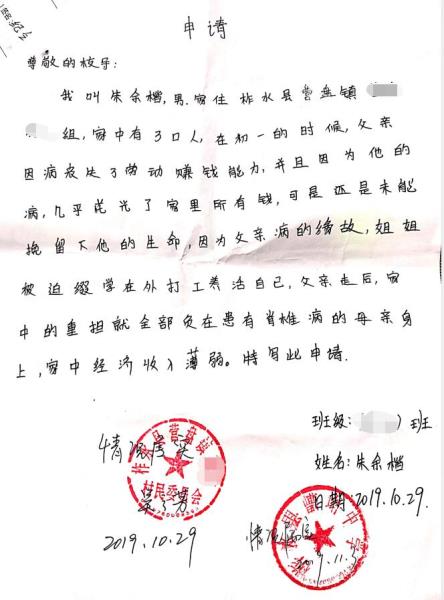 申请
尊敬的校导:
我叫朱余楷,男.家住柞水县营盘镇
组,家中有3口人,在初一的时候,父亲
因病丧失了劳动赚钱能力,并且因为他的
病,几乎花光了家里所有钱,可是还是未能
挽留下他的生命,因为父亲病的缘故,姐姐
被迫缀学在外打工养活自己,父亲走后,家
中的重担就全部负在患有脊椎病的母亲身
上,家中经济收入薄弱。特写此申请.
班级:( )班
姓名:朱余楷
日期:2019.10.29.
情况属实
村民委员会
2019.10.29
情况属实
2019.11.